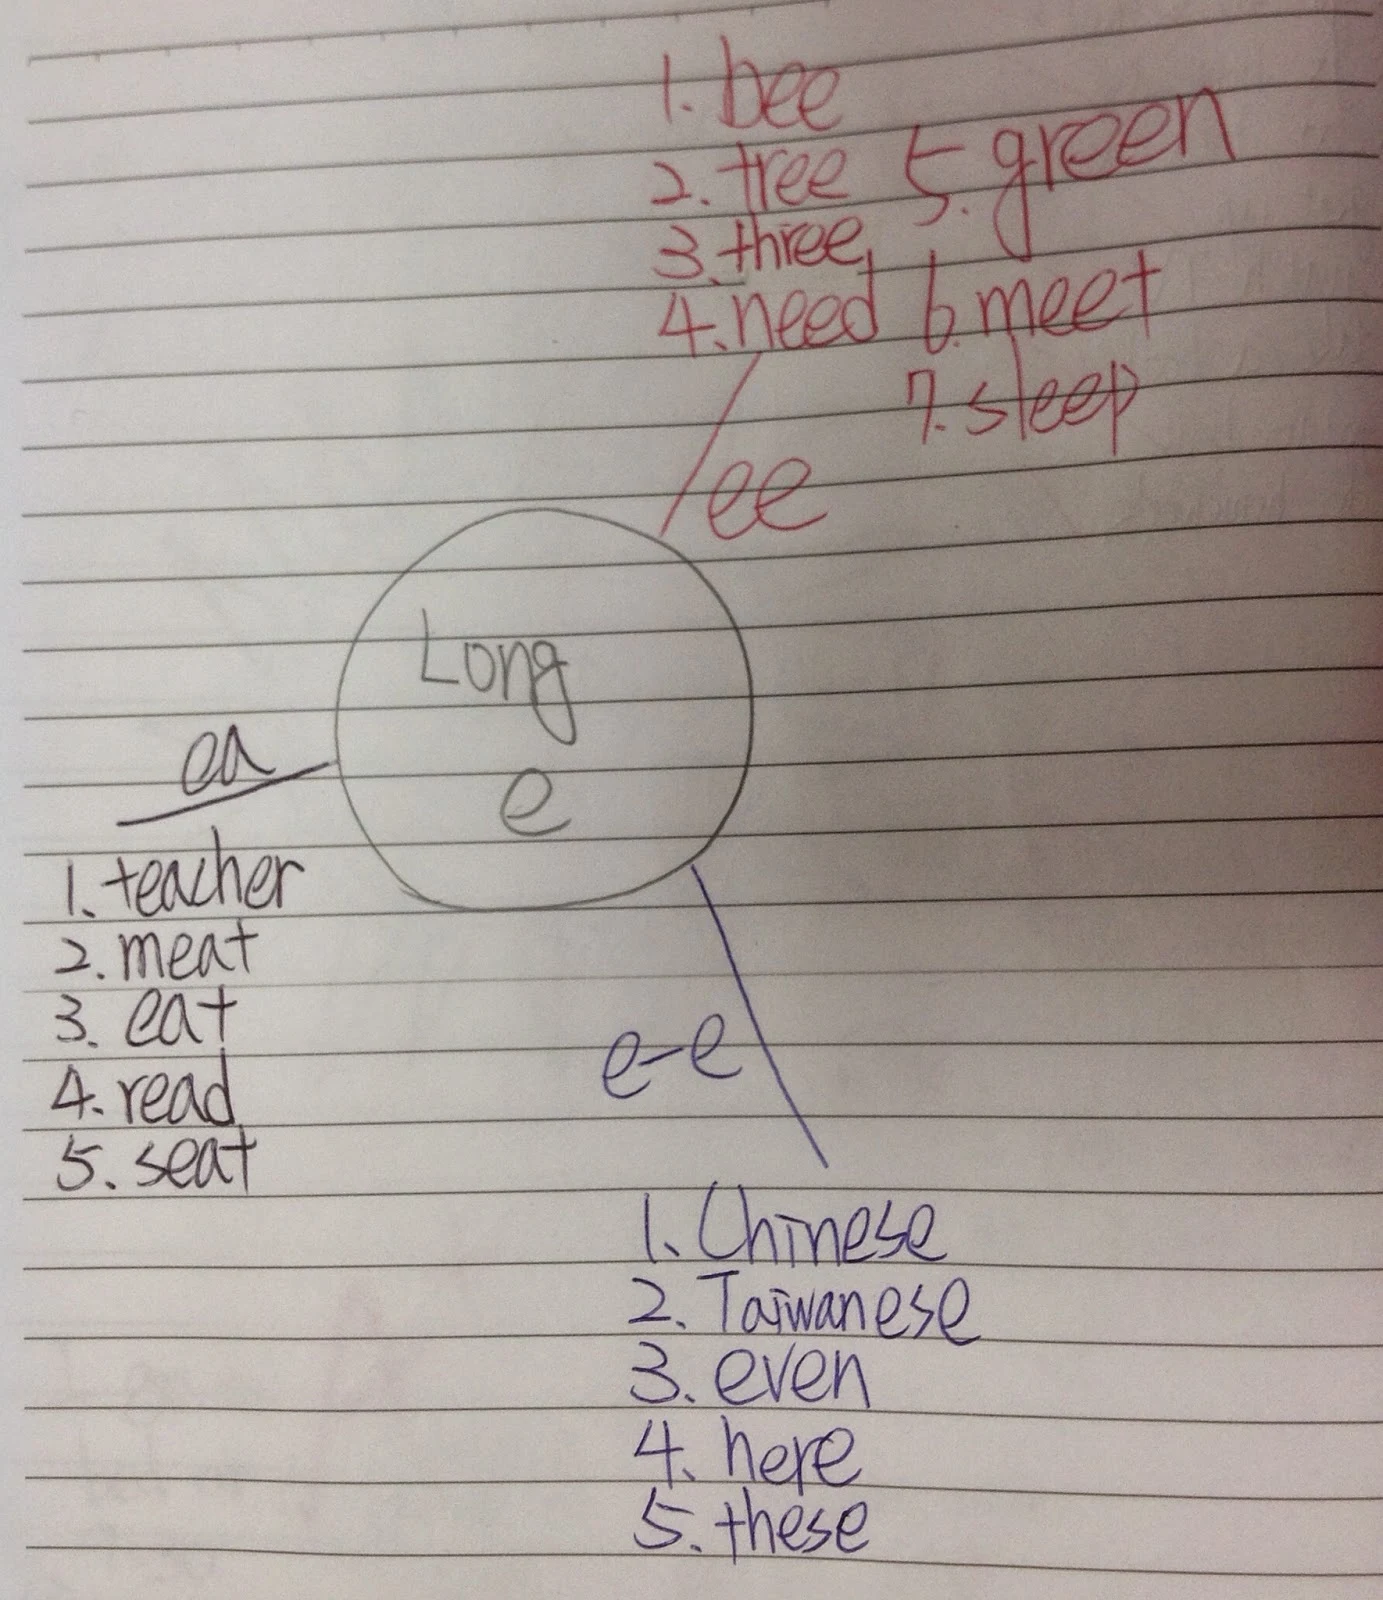 1. bee
2. tree
3. three
4. need
5. green
6. meet
7. sleep
ee
Long
e
ea
1. teacher
2. meat
3. eat
4. read
5. seat
e-e
1. Chinese
2. Taiwanese
3. even
4. here
5. these